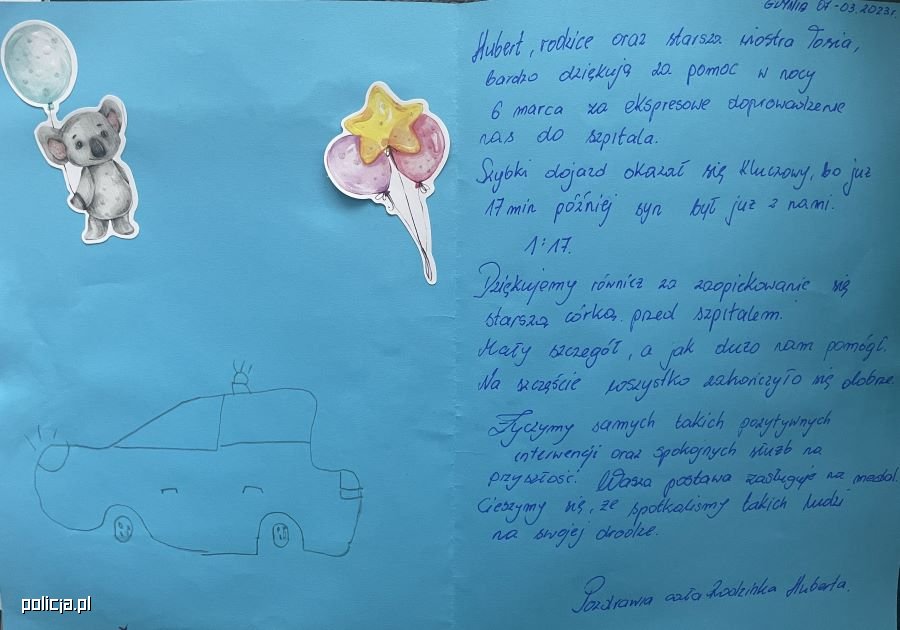 GDYNIA 07-03.2023r.
Hubert, rodzice oraz starsza siostra Tosia,
bardzo dziękują za pomoc w nocy
6 marca za ekspresowe doprowadzenie
nas do szpitala.
Szybki dojazd okazał się kluczowy, bo już
17 min później syn był już z nami.
1:17.
Dziękujemy również za zaopiekowanie się
starszą córką przed szpitalem.
Mały szczegół, a jak dużo nam pomógł.
Na szczęście wszystko zakończyło się dobrze.
Życzymy samych takich pozytywnych
interwencji oraz spokojnych służb na
przyszłość. Wasza postawa zasługuje na medal.
Cieszymy się, że spotkaliśmy takich ludzi
na swojej drodze.
Pozdrawia cała Rodzinka Huberta.
policja.pl